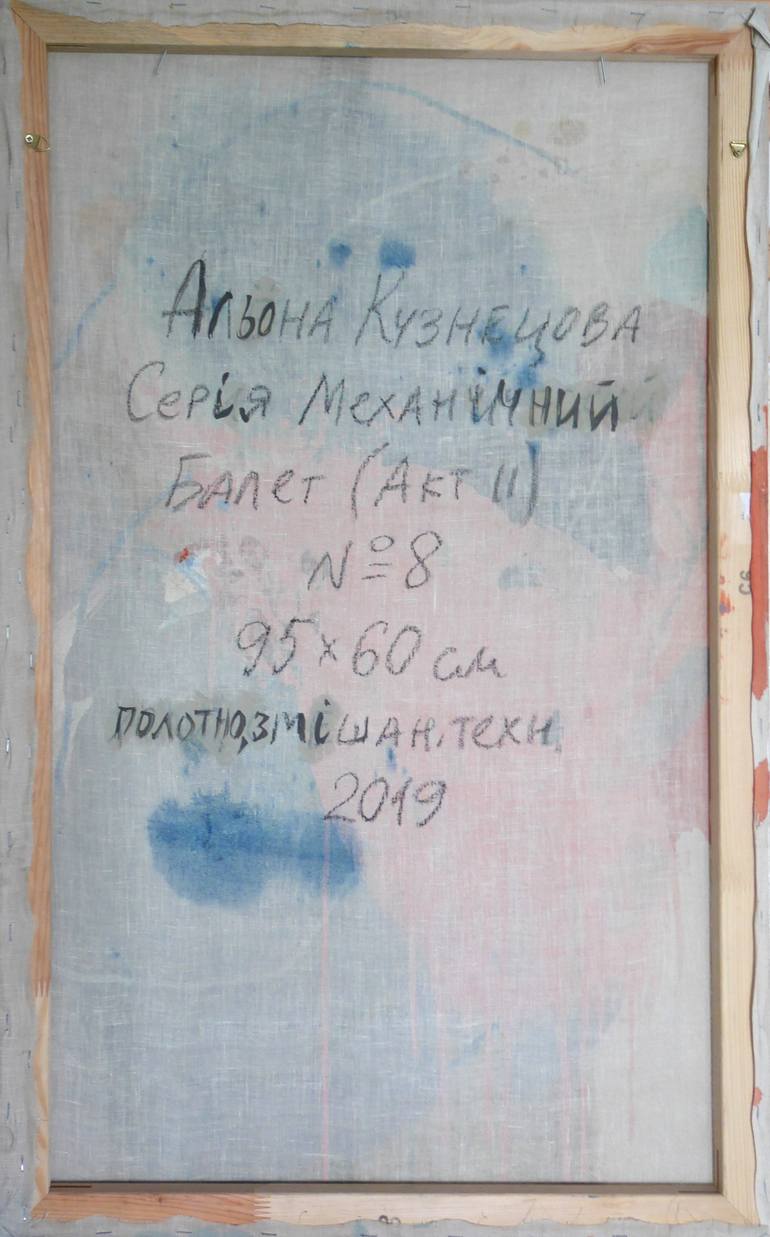 Альона Кузнецова
Серія Механічний
Балет (Акт II)
№8
95×60 см
полотно, змішан. техн.
2019